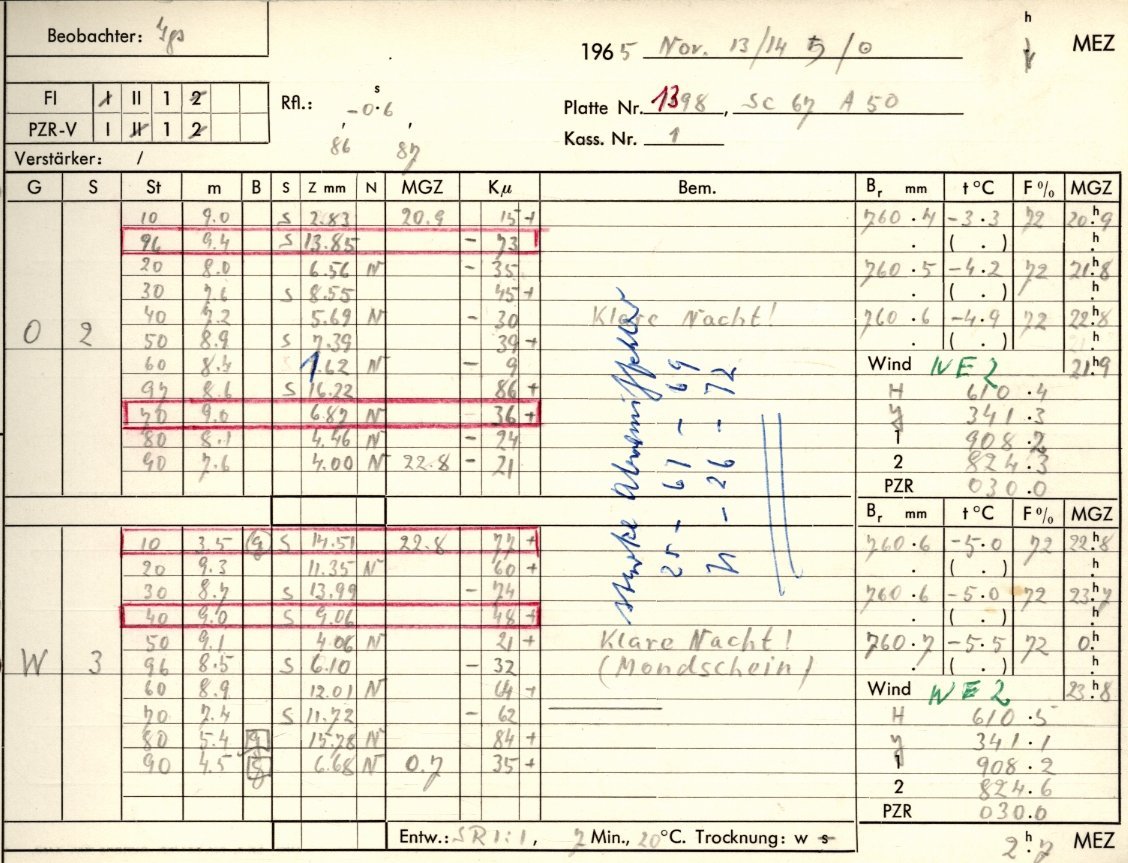 Beobachter:
1965 Nov. 13/14 5/0 h MEZ
FI I II 1 2
Rfl.: s -0.6
Platte Nr. 1398, Sc 67 A 50
PZR-V I II 1 2
86 87
Kass. Nr. 1
Verstärker: /
G S St m B S Z mm N MGZ Kμ Bem. Br mm t °C F % MGZ
10 9.0 S 2.83 20.9 15 + 760.4 -3.3 72 20.9 h
96 9.4 S 13.85 - 73 . ( . ) . h
20 8.0 6.56 N - 35 760.5 -4.2 72 21.8 h
30 7.6 S 8.55 45 + . ( . ) . h
40 7.2 5.69 N - 30 Klare Nacht! 760.6 -4.9 72 22.8 h
O 2 50 8.9 S 7.39 39 + . ( . ) h
60 8.4 1.62 N - 9 Wind NE 2 21.9 h
97 8.6 S 16.22 86 + H 610.4
70 9.0 6.87 N 36 + y 341.3
80 8.1 4.46 N - 24 1 908.2
90 7.6 4.00 N 22.8 - 21 2 824.3
PZR 030.0
starke
25 - 61 - 69
71 - 26 - 72
Br mm t °C F % MGZ
10 3.5 (g) S 14.51 22.8 77 + 760.6 -5.0 72 22.8 h
20 9.3 11.35 N 60 + . ( . ) . h
30 8.7 S 13.99 - 74 760.6 -5.0 72 23.7 h
40 9.0 S 9.06 48 + . ( . ) . h
50 9.1 4.06 N 21 + Klare Nacht! 760.7 -5.5 72 0. h
W 3 96 8.5 S 6.10 - 32 (Mondschein) . ( . ) . h
60 8.9 12.01 N 64 + Wind NE 2 23.8 h
70 7.4 S 11.72 - 62 H 610.5
80 5.4 g 15.78 N 84 + y 341.1
90 4.5 g 6.68 N 0.7 35 + 1 908.2
2 824.6
PZR 030.0
Entw.: SR 1:1, 7 Min., 20 °C. Trocknung: w s 2.7 h MEZ